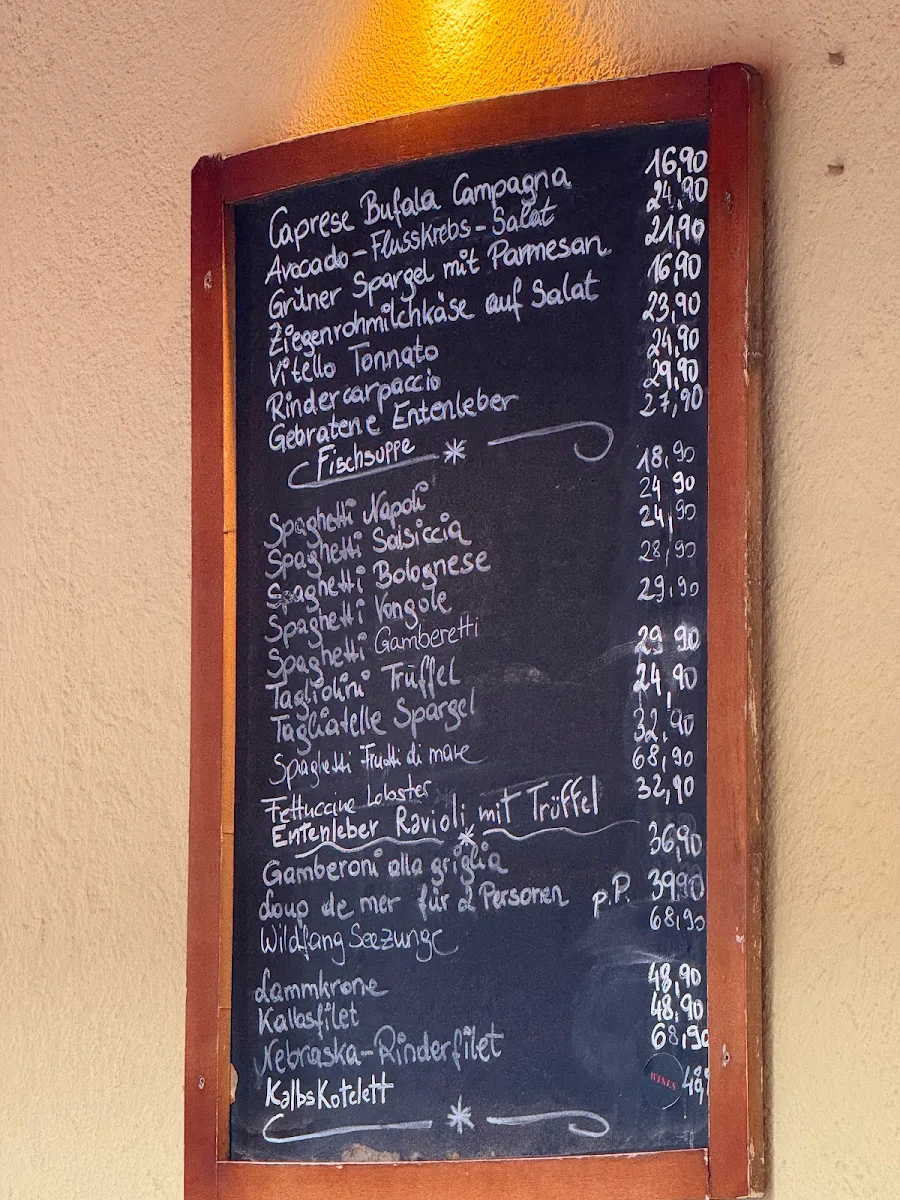 Caprese Bufala Campagna 16,90
Avocado-Flusskrebs-Salat 24,90
Grüner Spargel mit Parmesan 21,90
Ziegenrohmilchkäse auf Salat 16,90
Vitello Tonnato 23,90
Rindercarpaccio 24,90
Gebratene Entenleber 29,90
Fischsuppe 27,90
Spaghetti Napoli 18,90
Spaghetti Salsiccia 24,90
Spaghetti Bolognese 24,90
Spaghetti Vongole 28,90
Spaghetti Gamberetti 29,90
Tagliolini Trüffel 29,90
Tagliatelle Spargel 24,90
Spaghetti Frutti di mare 32,90
Fettuccine Lobster 68,90
Entenleber Ravioli mit Trüffel 32,90
Gamberoni alla griglia 36,90
Loup de mer für 2 Personen p.P. 39,90
Wildfang Seezunge 68,90
Lammkrone 48,90
Kalbsfilet 48,90
Nebraska-Rinderfilet 68,90
KalbsKotelett